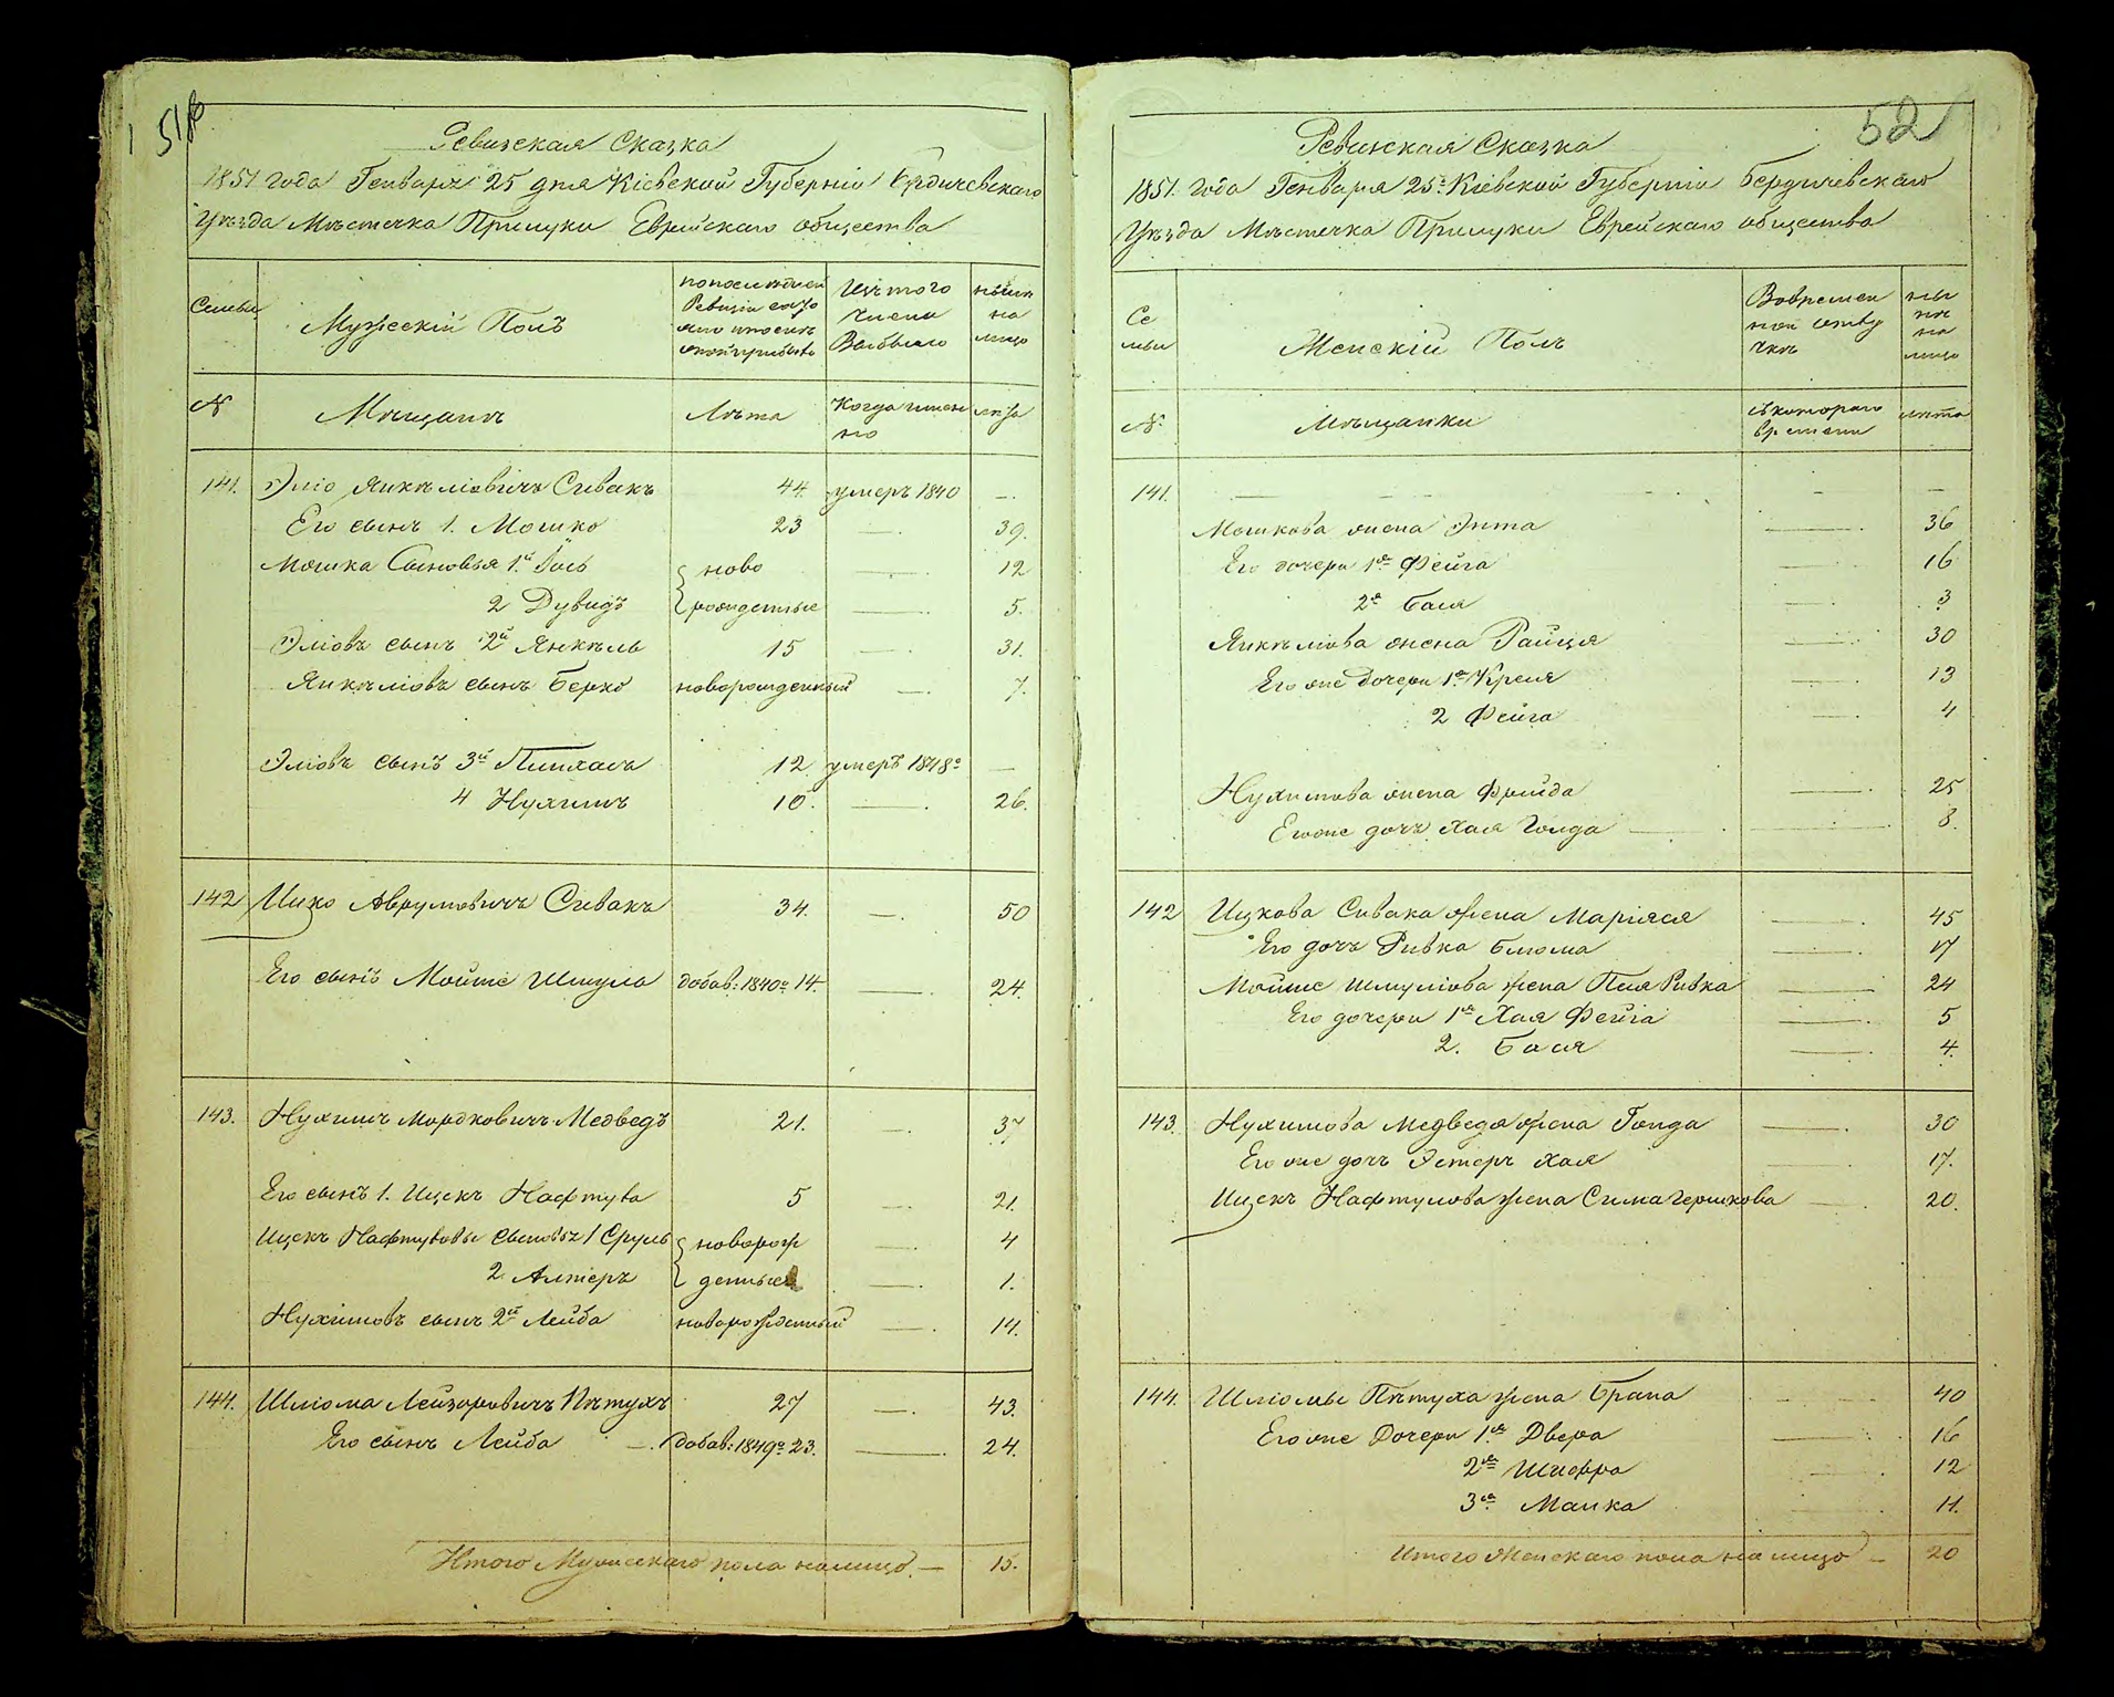 51 об
Ревизская Сказка
1851 года Генваря 25 дня Кіевской Губерніи Бердичевскаго
Уѣзда Мѣстечка Прилуки Еврейскаго общества
Семьи
Мужескій Полъ
по последней Ревизіи состояло и после оной прибыло
Изъ того числа Выбыло
нынѣ на лицо
№
Мѣщанѣ
Лѣта
Когда именно
лѣта
141. Эліо Янкѣліовичъ Сивакъ 44. умеръ 1840 —.
Его сынъ 1. Мошко 23 —. 39.
Мошка Сыновья 1й Іось ново — 12
2 Дувидъ рожденные —. 5.
Эліовъ сынъ 2й Янкѣль 15 —. 31.
Янкѣліовъ сынъ Берко новорожденный —. 7.
Эліовъ сынъ 3й Пинхасъ 12. умеръ 1848о —
4 Нухимъ 10. —. 26.
142 Ицко Аврумовичъ Сивакъ 34. —. 50
Его сынъ Мойше Шмуль добав: 1840о 14. —. 24.
143. Нухимъ Мордковичъ Медведъ 21. —. 37
Его сынъ 1. Ицекъ Нафтула 5 —. 21.
Ицекъ Нафтуловы Сыновья 1 Сруль новорож —. 4
2. Алтеръ денные —. 1.
Нухимовъ сынъ 2й Лейба новорожденный —. 14.
144. Шліома Лейзоровичъ Пѣтухъ 27 —. 43.
Его сынъ Лейба —. добав: 1849о 23. —. 24.
Итого Мужескаго пола налицо. — 15.
52
Ревизская Сказка
1851. года Генваря 25о. Кіевской Губерніи Бердичевскаго
Уѣзда Мѣстечка Прилуки Еврейскаго общества
Се мьи
Женскій Полъ
Вовременной отлучкѣ
ны нѣ на лицо
№.
Мѣщанки
съ котораго времени
лѣта
141. — — — — —
Мошкова жена Энта —. 36
Его дочери 1я Фейга —. 16
2я Бася —. 3
Янкѣліова жена Райця —. 30
Его же Дочери 1я Крейя —. 13
2 Фейга —. 4
Нухимова жена Фрейда —. 25
Егоже дочъ Хая Голда —. 8.
142 Ицкова Сивака жена Маріяся —. 45
Его дочъ Ривка Блюма —. 17
Мойше Шмуліова жена Пея Ривка —. 24
Его дочери 1я Хая Фейга —. 5
2. Бася —. 4.
143. Нухимова Медведя жена Голда —. 30
Его же дочъ Эстеръ Хая —. 17.
Ицекъ Нафтулова жена Сима Гершкова —. 20.
144. Шліомы Пѣтуха жена Брана — 40
Его же Дочери 1я Двера —. 16
2я Шифра —. 12
3я Малка —. 11.
Итого Женскаго пола на лицо — 20